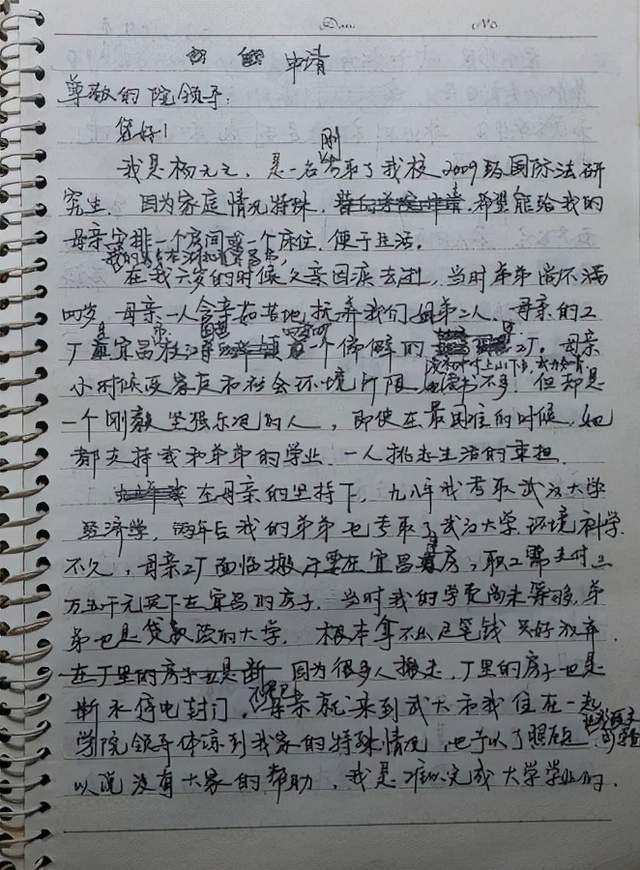 Date No
申请
尊敬的院领导：
您好！
刚
我是杨元元，是一名考取了我校2009级国际法研
究生．因为家庭情况特殊，希望能给我的
母亲安排一个房间或一个床位．便于生活．
在我六岁的时候父亲因疾去逝，当时弟弟尚不满
四岁．母亲一人含辛茹苦地抚养我们姐弟二人．母亲的工
厂是宜昌市枝江一个偏僻的工厂．母亲
小时候受家庭和社会环境所限，读书不多，但却是
一个刚毅坚强乐观的人，即使在最困难的时候，她
都支持我和弟弟的学业．一人挑起生活的重担．
在母亲的坚持下，九八年我考取武汉大学
经济学，两年后我的弟弟也考取了武汉大学环境科学．
不久，母亲工厂面临搬迁要在宜昌买房，职工需支付三
万五千元买下在宜昌的房子．当时我的学费尚未筹够，弟
弟也是贷款读的大学．根本拿不出这笔钱只好放弃．
在厂里的房子也是断 因为很多人搬走，厂里的房子也是
断水停电封门．母亲就来到武大和我住在一起
学院领导体谅到我家的特殊情况，也予以了照顾．可
以说没有大家的帮助，我是难以完成大学学业的．